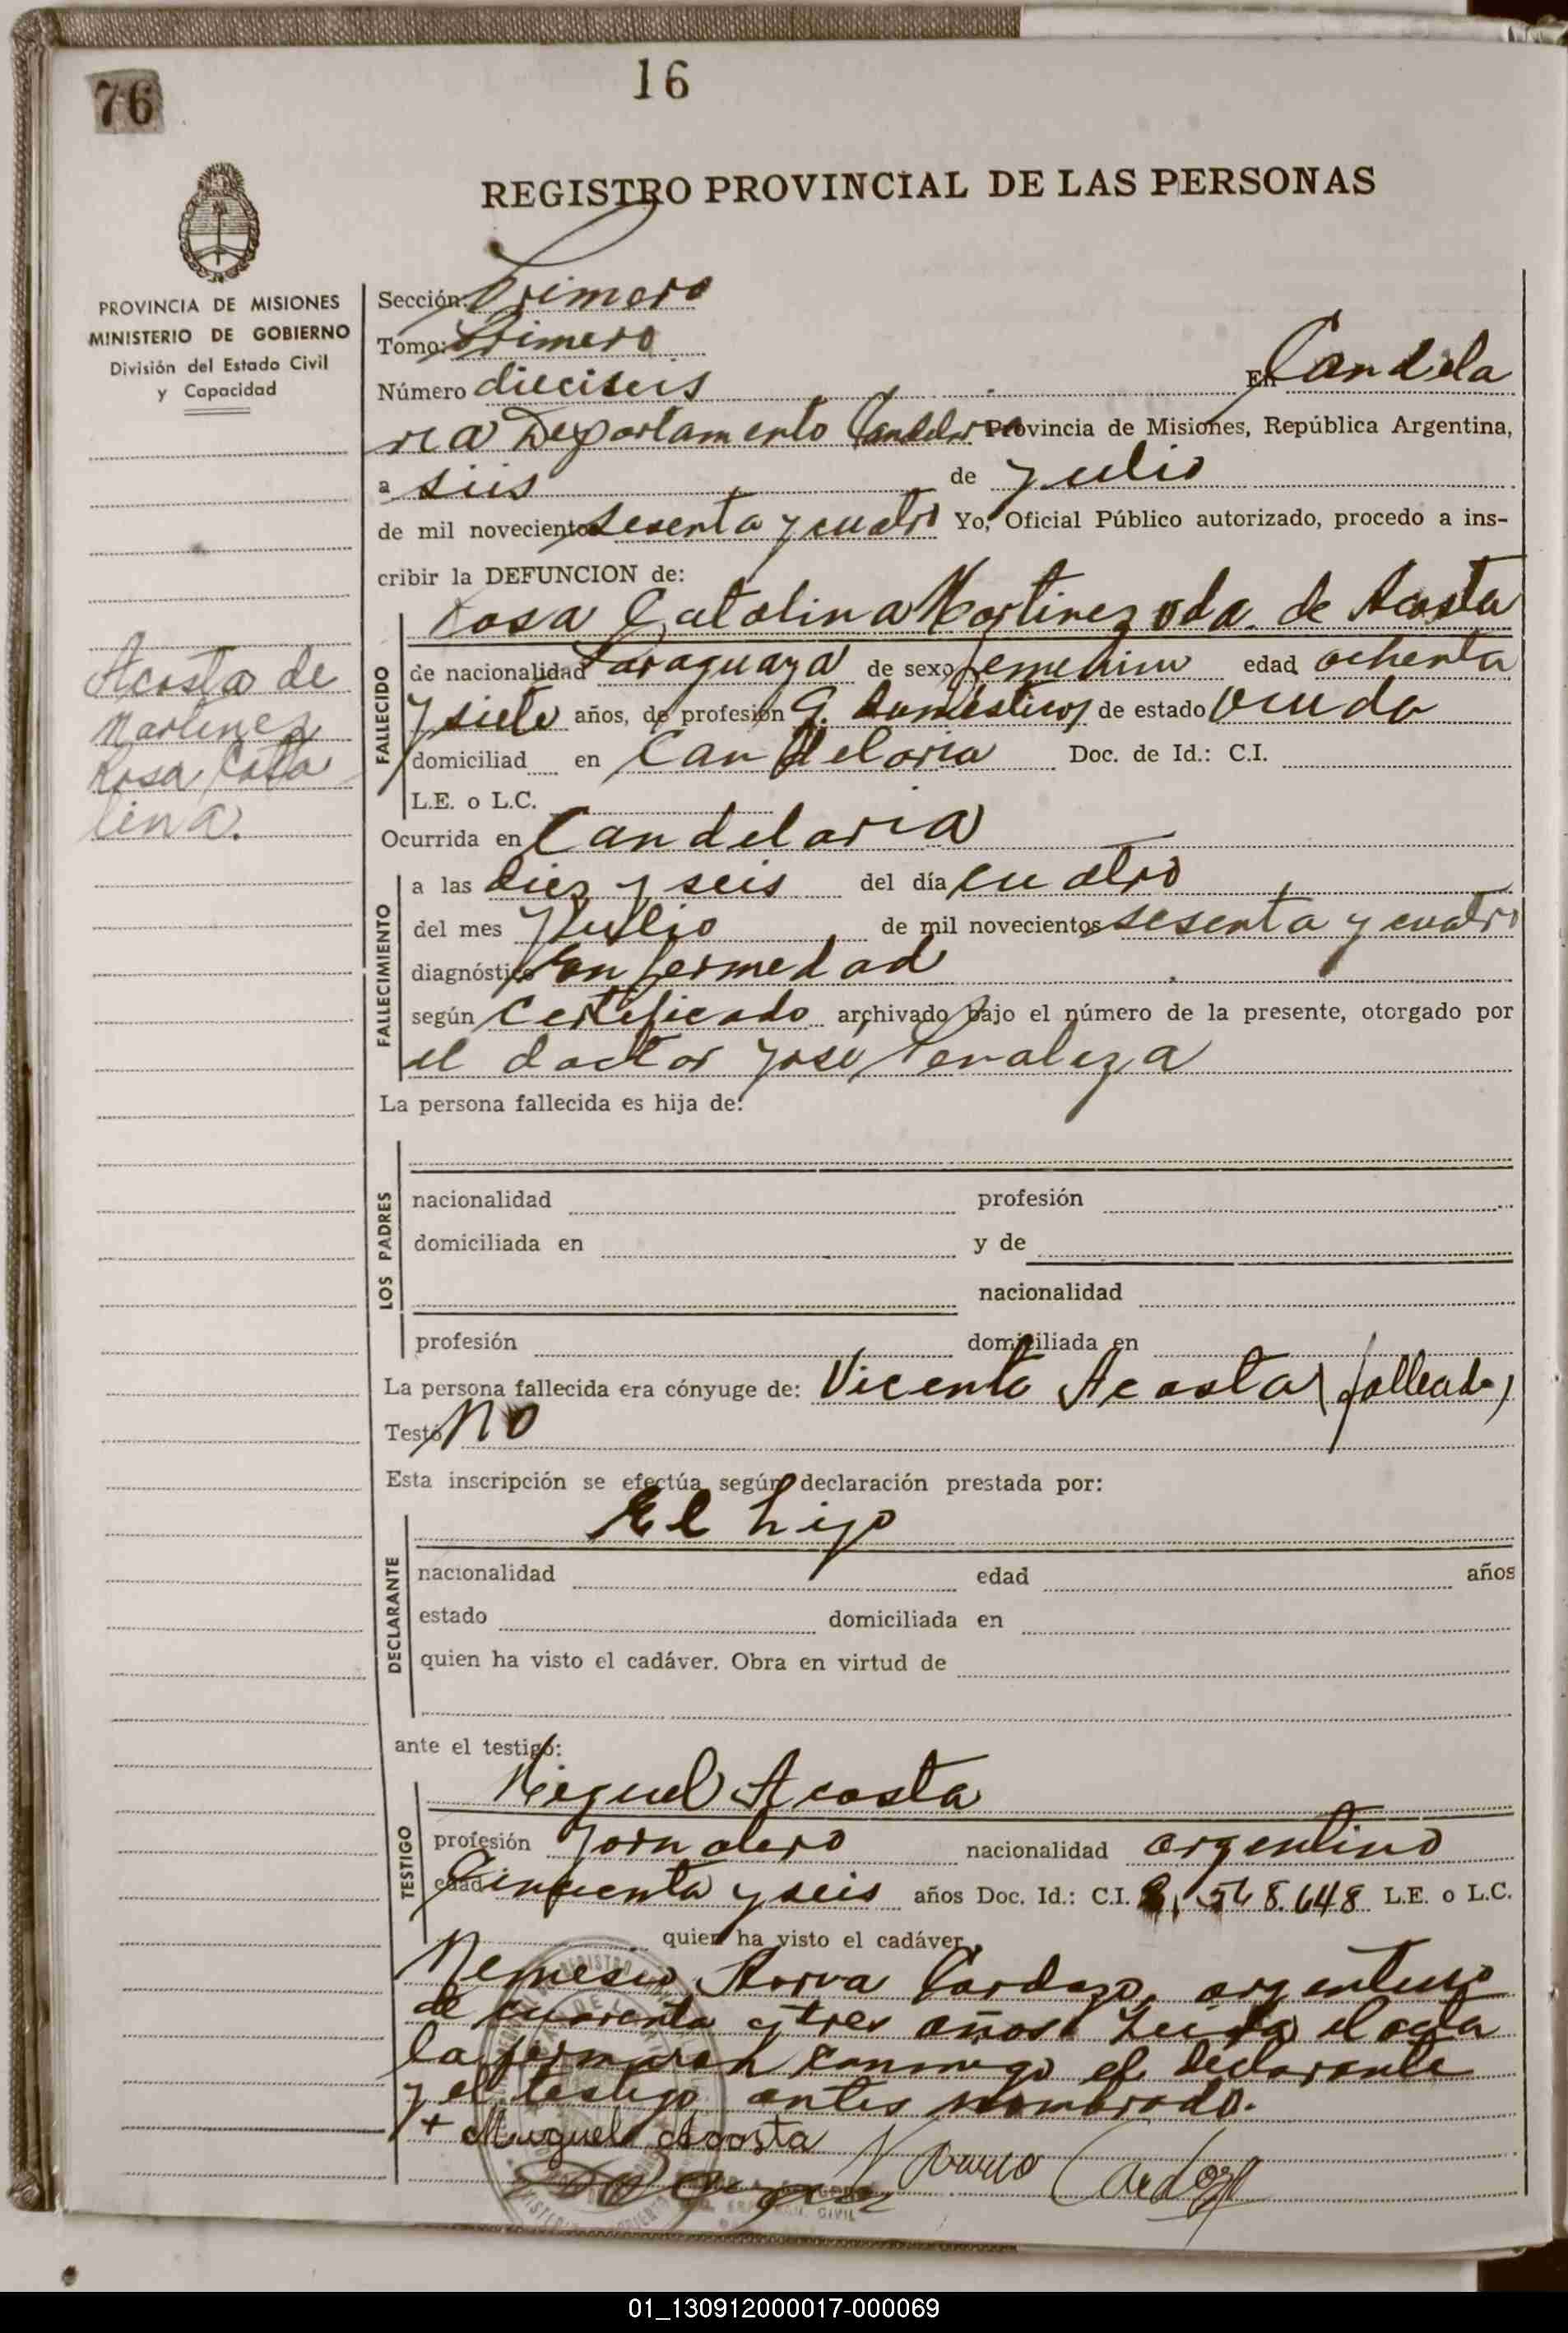 76
16
REGISTRO PROVINCIAL DE LAS PERSONAS
PROVINCIA DE MISIONES
MINISTERIO DE GOBIERNO
División del Estado Civil
y Capacidad
Acosta de
Martinez
Rosa Cata
lina.
Sección: Primero
Tomo: Primero
Número dieciseis En Candela
ria Departamento Candelaria Provincia de Misiones, República Argentina,
a seis de Julio
de mil novecientos sesenta y cuatro Yo, Oficial Público autorizado, procedo a ins-
cribir la DEFUNCION de:
Rosa Catalina Martinez vda. de Acosta
FALLECIDO
de nacionalidad Paraguaya de sexo femenino edad ochenta
y siete años, de profesión Q. Domésticos de estado viuda
domiciliad en Candelaria Doc. de Id.: C.I.
L.E. o L.C.
Ocurrida en Candelaria
FALLECIMIENTO
a las diez y seis del día cuatro
del mes Julio de mil novecientos sesenta y cuatro
diagnóstico Enfermedad
según Certificado archivado bajo el número de la presente, otorgado por
el doctor José Peraleza
La persona fallecida es hija de:
LOS PADRES
nacionalidad profesión
domiciliada en y de
nacionalidad
profesión domiciliada en
La persona fallecida era cónyuge de: Vicente Acosta (fallecido)
Testó No
Esta inscripción se efectúa según declaración prestada por:
El hijo
DECLARANTE
nacionalidad edad años
estado domiciliada en
quien ha visto el cadáver. Obra en virtud de
ante el testigo:
Miguel Acosta
TESTIGO
profesión Jornalero nacionalidad argentino
edad Cincuenta y seis años Doc. Id.: C.I. 568.648 L.E. o L.C.
quien ha visto el cadáver.
Nemesio Cardozo, argentino
de cuarenta y tres años. Leida el acta
la firmaron conmigo el declarante
y el testigo antes nombrado.
+ Miguel Acosta Cardozo
01_130912000017-000069